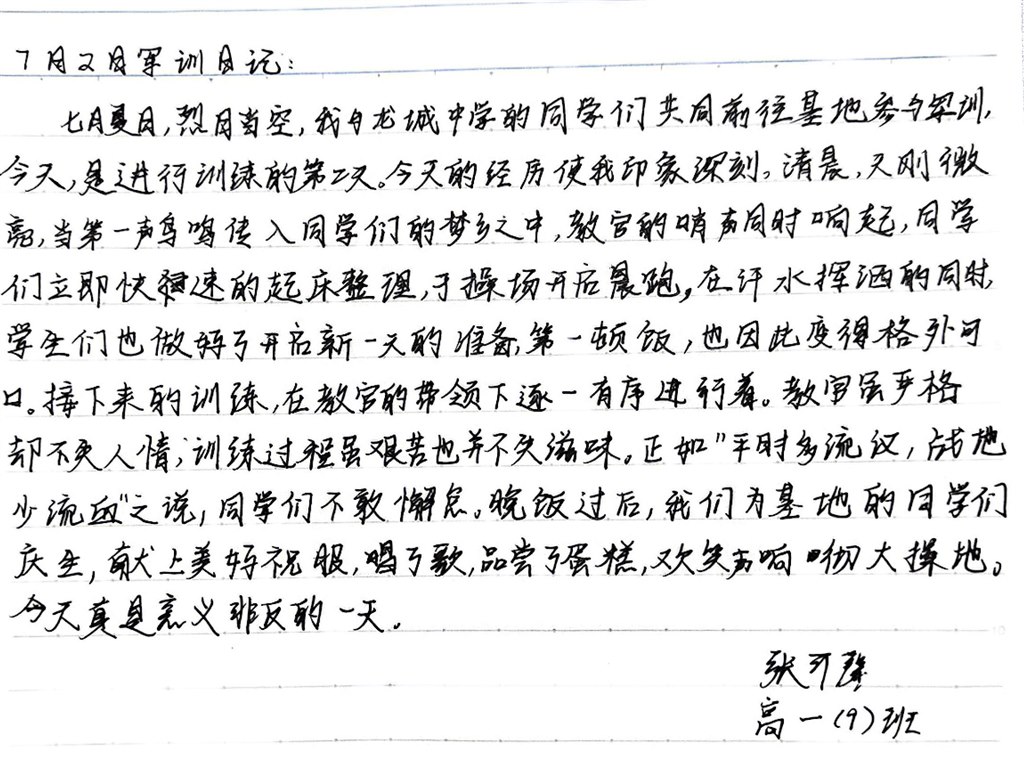 7月2日军训日记:
七月夏日,烈日当空,我与龙城中学的同学们共同前往基地参与军训,
今天,是进行训练的第二天。今天的经历使我印象深刻。清晨,天刚微
亮,当第一声鸟鸣传入同学们的梦乡之中,教官的哨声同时响起,同学
们立即快速的起床整理,于操场开启晨跑,在汗水挥洒的同时,
学生们也做好了开启新一天的准备,第一顿饭,也因此变得格外可
口。接下来的训练,在教官的带领下逐一有序进行着。教官虽严格
却不失人情;训练过程虽艰苦也并不失滋味。正如"平时多流汉,战地
少流血"之说,同学们不敢懈怠。晚饭过后,我们为基地的同学们
庆生,献上美好祝服,唱了歌,品尝了蛋糕,欢笑声响彻大操地。
今天真是意义非反的一天。
张可馨
高一(9)班